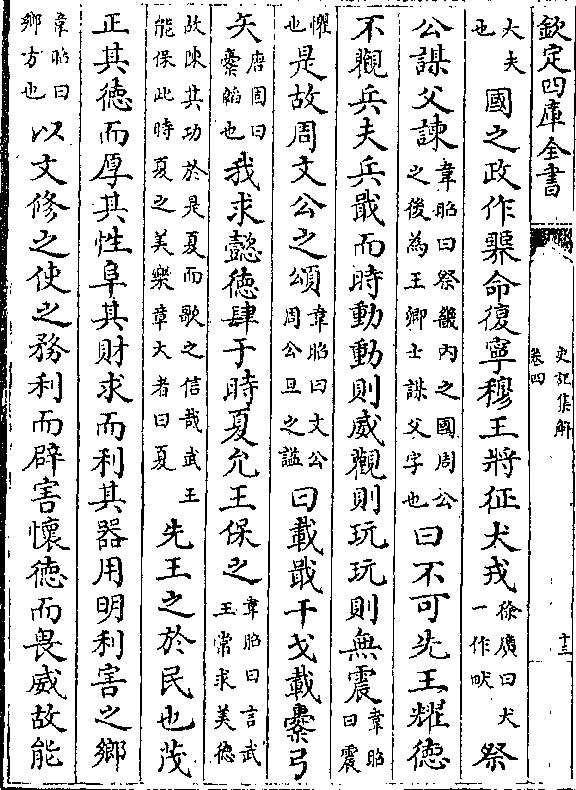 欽定四庫全書
史記集解
卷四
十三
大夫也國之政作臩命復寧穆王將征犬戎徐廣曰犬一作畎祭
公謀父諫韋昭曰祭畿内之國周公之後為王卿士謀父字也曰不可先王耀徳
不觀兵夫兵戢而時動動則威觀則玩玩則無震韋昭曰震
懼也是故周文公之頌韋昭曰文公周公旦之諡曰載戢干戈載櫜弓
矢唐固曰櫜韜也我求懿徳肆于時夏允王保之韋昭曰言武王常求美徳
故陳其功於是夏而歌之信哉武王能保此時夏之美樂章大者曰夏先王之於民也茂
正其徳而厚其性阜其財求而利其器用明利害之鄉
韋昭曰鄉方也以文修之使之務利而辟害懷徳而畏威故能